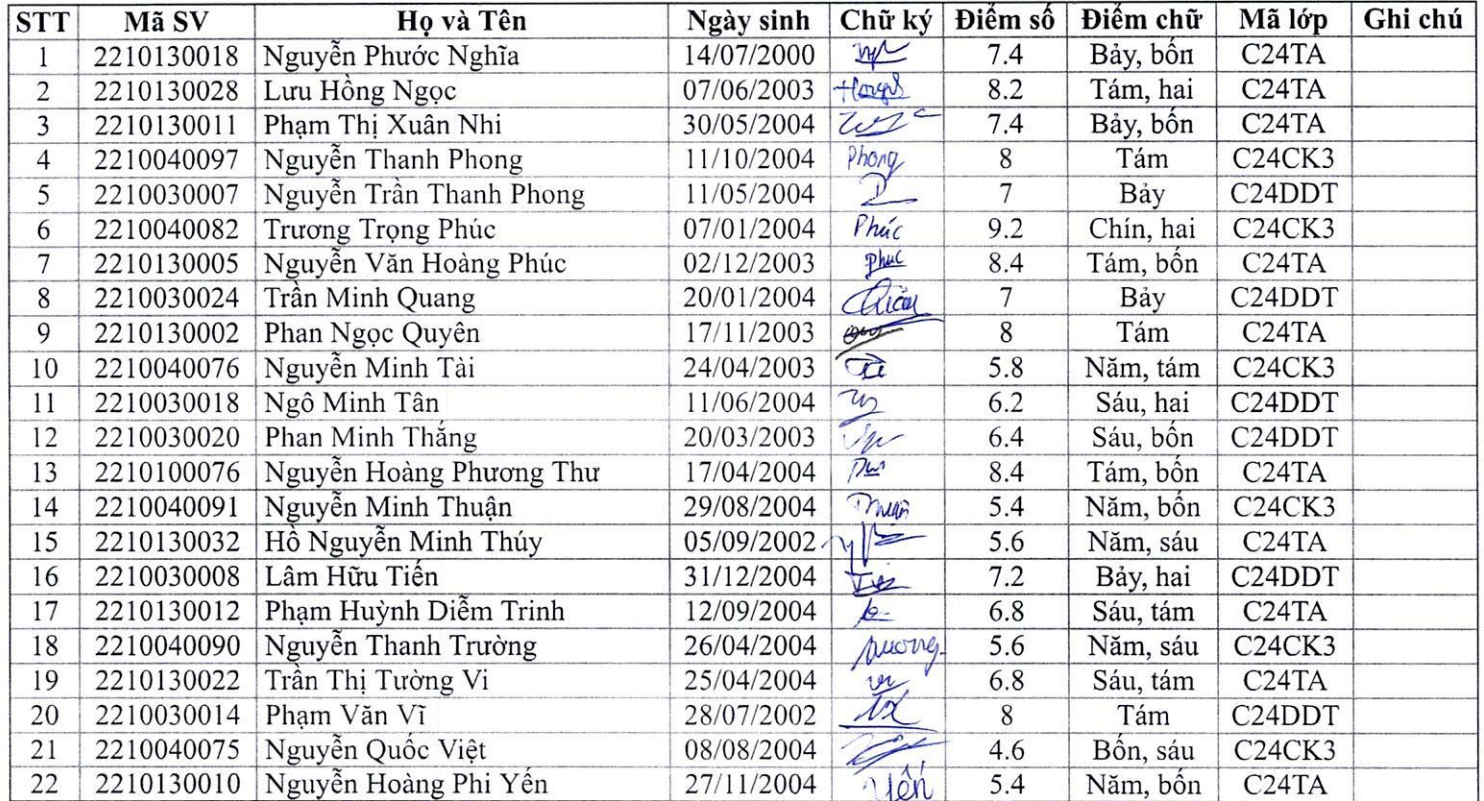 STT Mã SV Họ và Tên Ngày sinh Chữ ký Điểm số Điểm chữ Mã lớp Ghi chú
1 2210130018 Nguyễn Phước Nghĩa 14/07/2000 7.4 Bảy, bốn C24TA
2 2210130028 Lưu Hồng Ngọc 07/06/2003 8.2 Tám, hai C24TA
3 2210130011 Phạm Thị Xuân Nhi 30/05/2004 7.4 Bảy, bốn C24TA
4 2210040097 Nguyễn Thanh Phong 11/10/2004 Phong 8 Tám C24CK3
5 2210030007 Nguyễn Trần Thanh Phong 11/05/2004 7 Bảy C24DDT
6 2210040082 Trương Trọng Phúc 07/01/2004 Phúc 9.2 Chín, hai C24CK3
7 2210130005 Nguyễn Văn Hoàng Phúc 02/12/2003 Phuc 8.4 Tám, bốn C24TA
8 2210030024 Trần Minh Quang 20/01/2004 7 Bảy C24DDT
9 2210130002 Phan Ngọc Quyên 17/11/2003 8 Tám C24TA
10 2210040076 Nguyễn Minh Tài 24/04/2003 5.8 Năm, tám C24CK3
11 2210030018 Ngô Minh Tân 11/06/2004 6.2 Sáu, hai C24DDT
12 2210030020 Phan Minh Thắng 20/03/2003 6.4 Sáu, bốn C24DDT
13 2210100076 Nguyễn Hoàng Phương Thư 17/04/2004 8.4 Tám, bốn C24TA
14 2210040091 Nguyễn Minh Thuận 29/08/2004 Thuận 5.4 Năm, bốn C24CK3
15 2210130032 Hồ Nguyễn Minh Thúy 05/09/2002 5.6 Năm, sáu C24TA
16 2210030008 Lâm Hữu Tiến 31/12/2004 7.2 Bảy, hai C24DDT
17 2210130012 Phạm Huỳnh Diễm Trinh 12/09/2004 6.8 Sáu, tám C24TA
18 2210040090 Nguyễn Thanh Trường 26/04/2004 5.6 Năm, sáu C24CK3
19 2210130022 Trần Thị Tường Vi 25/04/2004 6.8 Sáu, tám C24TA
20 2210030014 Phạm Văn Vĩ 28/07/2002 8 Tám C24DDT
21 2210040075 Nguyễn Quốc Việt 08/08/2004 4.6 Bốn, sáu C24CK3
22 2210130010 Nguyễn Hoàng Phi Yến 27/11/2004 Yến 5.4 Năm, bốn C24TA